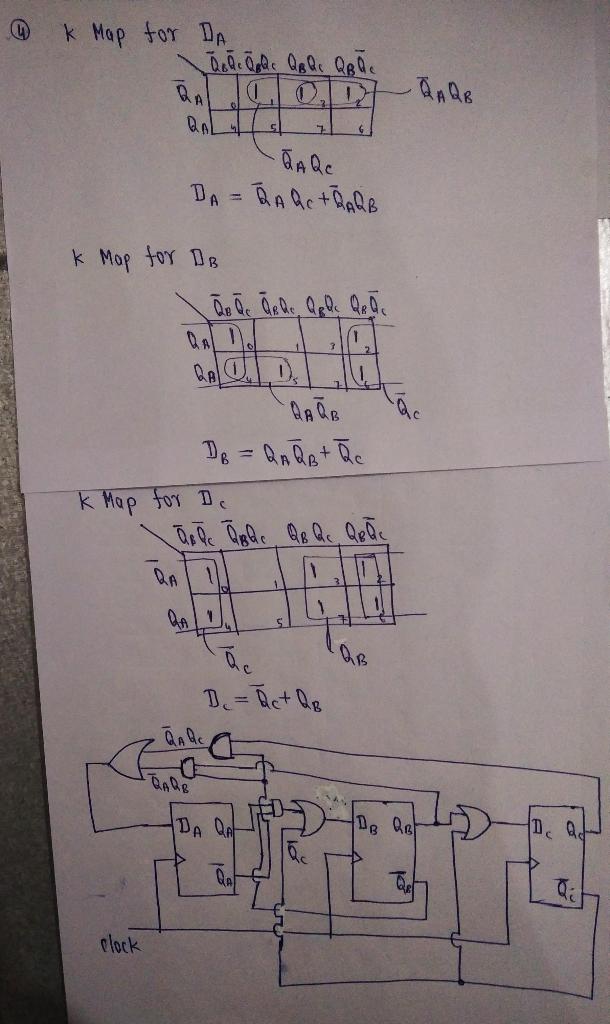 ④ K Map for D_A
Q̄_BQ̄_C Q̄_BQ_C Q_BQ_C Q_BQ̄_C
Q̄_A 0 1 1 1 3 1 2 Q̄_AQ_B
Q_A 4 5 7 6
Q̄_AQ_C
D_A = Q̄_AQ_C + Q̄_AQ_B
K Map for D_B
Q̄_BQ̄_C Q̄_BQ_C Q_BQ_C Q_BQ̄_C
Q_A 1 0 1 3 1 2
Q_A 1 4 1 5 7 1 6
Q_AQ̄_B Q̄_C
D_B = Q_AQ̄_B + Q̄_C
K Map for D_C
Q̄_BQ̄_C Q̄_BQ_C Q_BQ_C Q_BQ̄_C
Q̄_A 1 0 1 1 3 1 2
Q_A 1 4 5 1 7 1 6
Q̄_C Q_B
D_C = Q̄_C + Q_B
Q̄_AQ_C
Q̄_AQ_B
D_A Q_A D_B Q_B D_C Q_C
Q̄_C
Q̄_A Q̄_B Q̄_C
clock